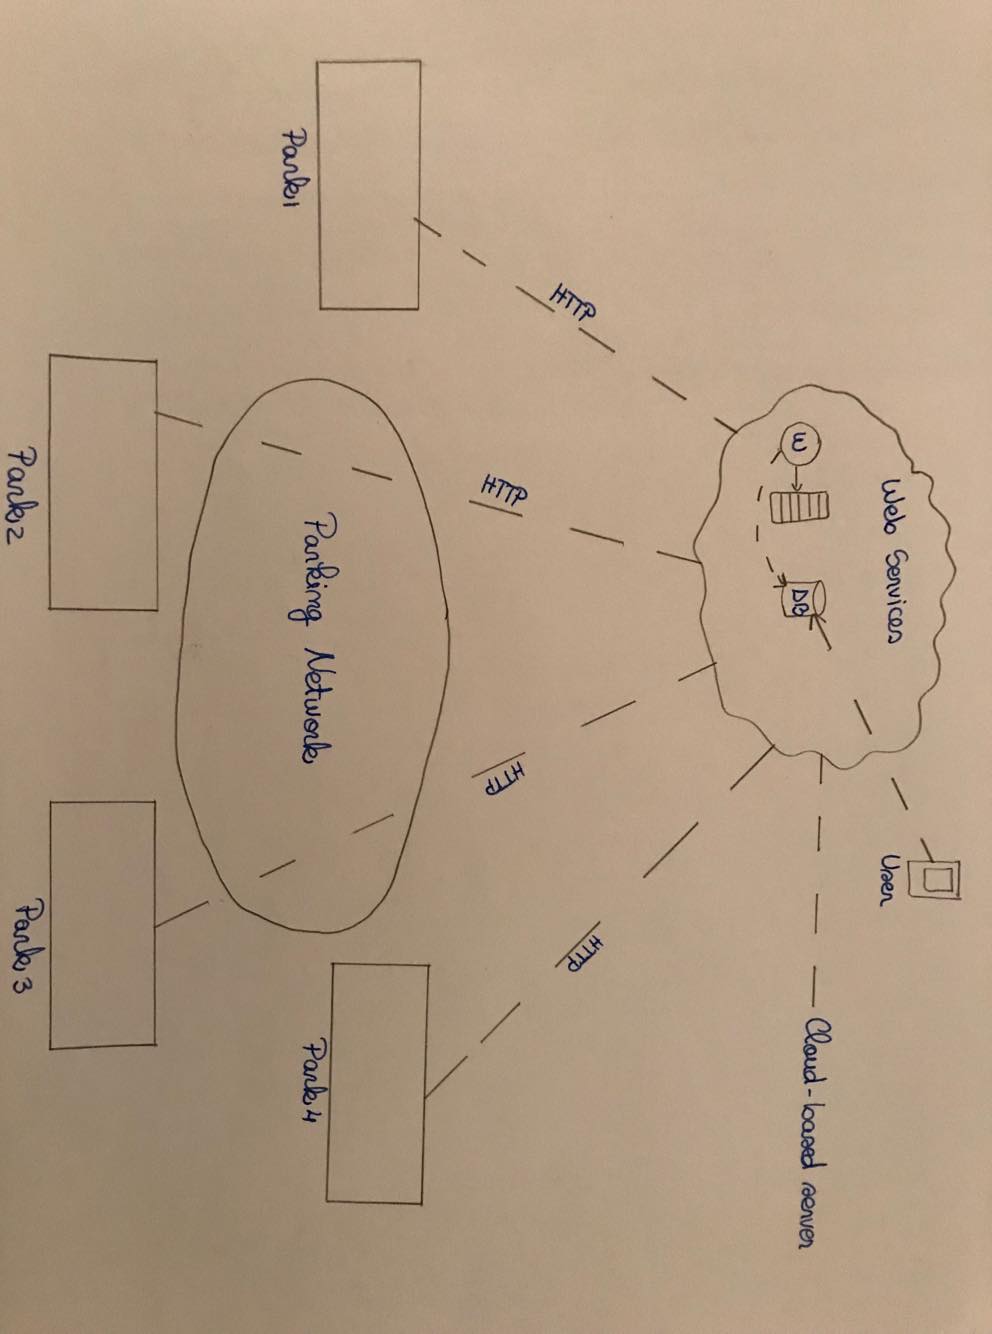 Web Services
User
W
DB
Cloud-based server
HTTP
HTTP
HTTP
HTTP
Parking Network
Park1
Park4
Park2
Park3